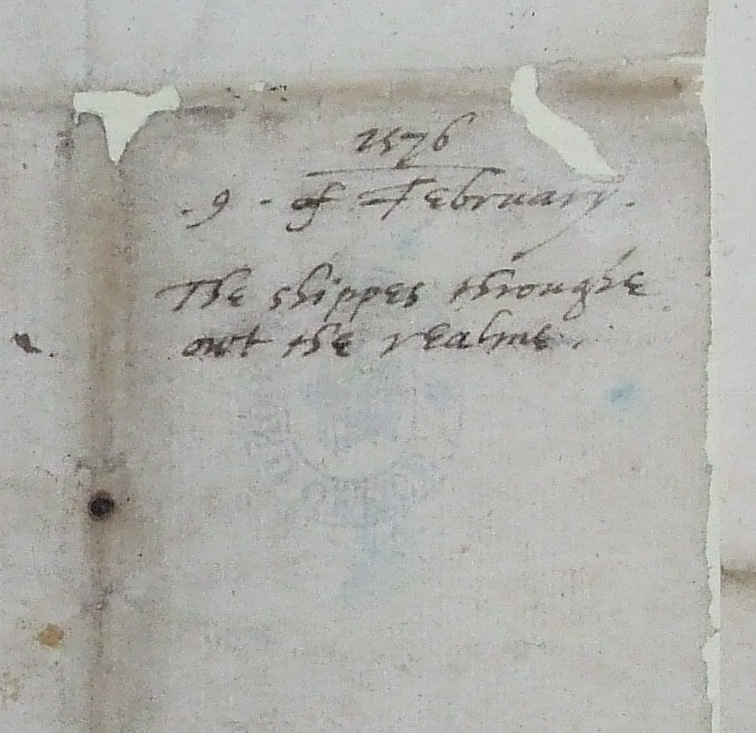 1576
.9. of February.
The shippes throughe
owt the realme.